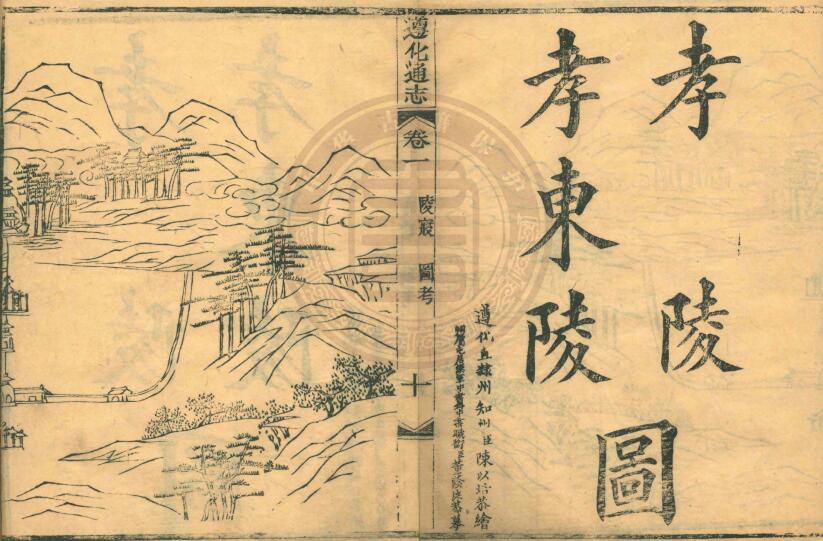 孝陵
孝東陵
圖
遵化直隸州知州臣陳以培恭繪
遵化通志
卷一
陵寢
圖考
十